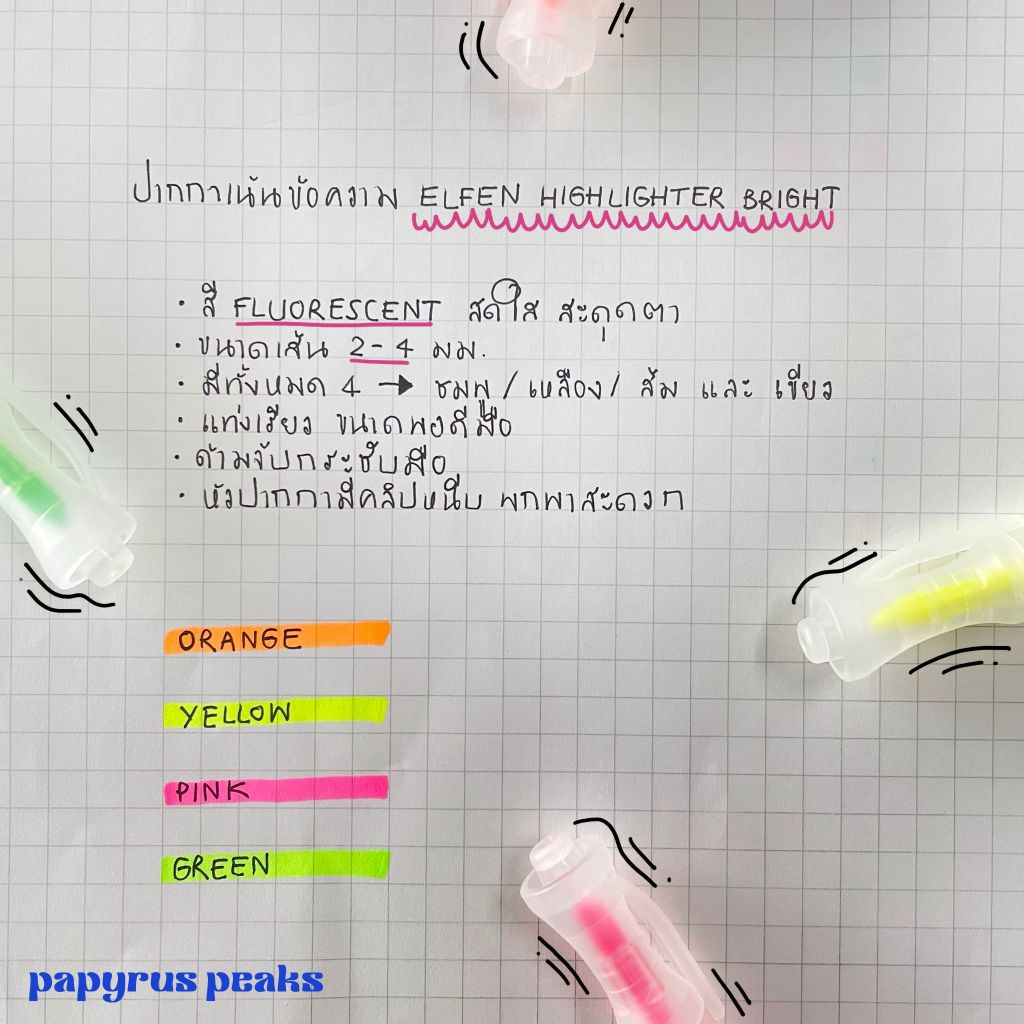 ปากกาเน้นข้อความ ELFEN HIGHLIGHTER BRIGHT
• สี FLUORESCENT สดใส สะดุดตา
• ขนาดเส้น 2-4 มม.
• มีทั้งหมด 4 → ชมพู / เหลือง / ส้ม และ เขียว
• แท่งเรียว ขนาดพอดีมือ
• ด้ามจับกระชับมือ
• หัวปากกามีคลิปหนีบ พกพาสะดวก
ORANGE
YELLOW
PINK
GREEN
papyrus peaks